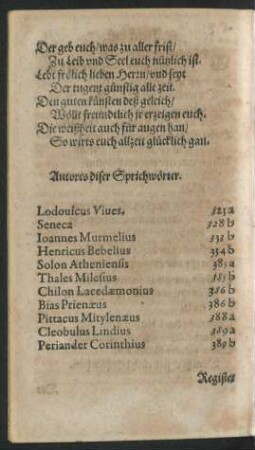 Der geb euch/was zu aller frist/
Zu Leib vnd Seel euch nützlich ist.
Lebt frölich lieben Herrn/vnd seyt
Der tugent günstig alle zeit.
Den guten künsten deß geleich/
Wöllt freundtlich je erzeigen euch.
Die weißheit auch für augen han/
So wirts euch allzeit glücklich gan.
Autores diser Sprichwörter.
Lodouicus Viues. 323 a
Seneca 328 b
Ioannes Murmelius 331 b
Henricus Bebelius 354 b
Solon Atheniensis 383 a
Thales Milesius 385 b
Chilon Lacedæmonius 386 b
Bias Prienæus 386 b
Pittacus Mitylenæus 388 a
Cleobulus Lindius 389 a
Periander Corinthius 389 b
Register